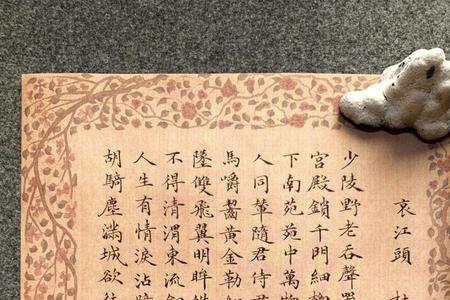 哀江頭
少陵野老吞聲
宮殿鎖千門細
下南苑苑中萬物
人同輦隨君侍君
馬嚼齧黃金勒
墜雙飛翼明眸
不得清渭東流
人生有情淚沾
胡騎塵滿城欲往